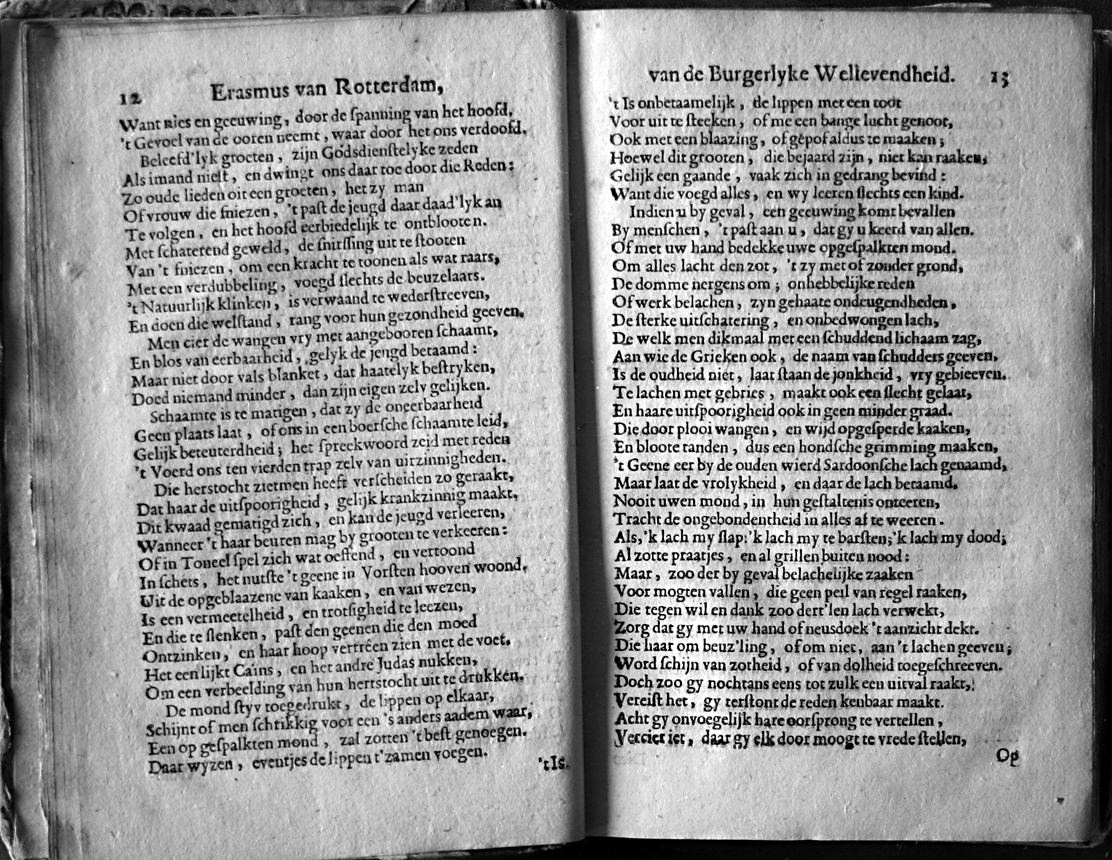 12 Erasmus van Rotterdam,
Want nies en geeuwing, door de ſpanning van het hoofd,
't Gevoel van de ooren neemt, waar door het ons verdoofd.
Beleefd'lyk groeten, zijn Godsdienſtelyke zeden
Als imand nieſt, en dwingt ons daar toe door die Reden:
Zo oude lieden oit een groeten, het zy man
Of vrouw die ſniezen, 't paſt de jeugd daar daad'lyk an
Te volgen, en het hoofd eerbiedelijk te ontblooten.
Met ſchaterend geweld, de ſnirſſing uit te ſtooten
Van 't ſniezen, om een kracht te toonen als wat raars,
Met een verdubbeling, voegd ſlechts de beuzelaars.
't Natuurlijk klinken, is verwaand te wederſtreeven,
En doen die welſtand, rang voor hun gezondheid geeven.
Men cier de wangen vry met aangebooren ſchaamt,
En blos van eerbaarheid, gelyk de jeugd betaamd:
Maar niet door vals blanket, dat haatelyk beſtryken,
Doed niemand minder, dan zijn eigen zelv gelijken.
Schaamte is te matigen, dat zy de oneerbaarheid
Geen plaats laat, of ons in een boerſche ſchaamte leid,
Gelijk beteuterdheid; het ſpreekwoord zeid met reden
't Voerd ons ten vierden trap zelv van uitzinnigheden.
Die herstocht zietmen heeft verſcheiden zo geraakt,
Dat haar de uitſpoorigheid, gelijk krankzinnig maakt,
Dit kwaad gematigd zich, en kan de jeugd verleeren,
Wanneer 't haar beuren mag by grooten te verkeeren:
Of in Toneel ſpel zich wat oeffend, en vertoond
In ſchets, het nutſte 't geene in Vorſten hooven woond,
Uit de opgeblaazene van kaaken, en van wezen,
Is een vermeetelheid, en trotſigheid te leezen,
En die te ſlenken, paſt den geenen die den moed
Ontzinken, en haar hoop vertréen zien met de voet.
Het een lijkt Caïns, en het andre Judas nukken,
Om een verbeelding van hun hertstocht uit te drukken.
De mond ſtyv toegedrukt, de lippen op elkaar,
Schijnt of men ſchrikkig voor een 's anders aadem waar,
Een op geſpalkten mond, zal zotten 't beſt genoegen.
Daar wyzen, eventjes de lippen t'zamen voegen.
't Is.
van de Burgerlyke Wellevendheid. 13
't Is onbetaamelijk, de lippen met een toot
Voor uit te ſteeken, of me een bange lucht genoot,
Ook met een blaazing, of gépof aldus te maaken;
Hoewel dit grooten, die bejaard zijn, niet kan raaken,
Gelijk een gaande, vaak zich in gedrang bevind:
Want die voegd alles, en wy leeren ſlechts een kind.
Indien u by geval, een geeuwing komt bevallen
By menſchen, 't paſt aan u, dat gy u keerd van allen.
Of met uw hand bedekke uwe opgeſpalkten mond.
Om alles lacht den zot, 't zy met of zonder grond,
De domme nergens om; onhebbelijke reden
Of werk belachen, zyn gehaate ondeugendheden,
De ſterke uitſchatering, en onbedwongen lach,
De welk men dikmaal met een ſchuddend lichaam zag,
Aan wie de Grieken ook, de naam van ſchudders geeven,
Is de oudheid niet, laat ſtaan de jonkheid, vry gebleeven.
Te lachen met gebries, maakt ook een ſlecht gelaat,
En haare uitſpoorigheid ook in geen minder graad.
Die door plooi wangen, en wijd opgeſperde kaaken,
En bloote tanden, dus een hondſche grimming maaken,
't Geene eer by de ouden wierd Sardoonſche lach genaamd,
Maar laat de vrolykheid, en daar de lach betaamd,
Nooit uwen mond, in hun geſtaltenis onteeren,
Tracht de ongebondentheid in alles af te weeren.
Als,'k lach my ſlap;'k lach my te barſten;'k lach my dood;
Al zotte praatjes, en al grillen buiten nood:
Maar, zoo der by geval belachelijke zaaken
Voor mogten vallen, die geen peil van regel raaken,
Die tegen wil en dank zoo dert'len lach verwekt,
Zorg dat gy met uw hand of neusdoek 't aanzicht dekt.
Die haar om beuz'ling, of om niet, aan 't lachen geeven;
Word ſchijn van zotheid, of van dolheid toegeſchreeven.
Doch zoo gy nochtans eens tot zulk een uitval raakt,
Vereiſt het, gy terſtont de reden kenbaar maakt.
Acht gy onvoegelijk hare oorſprong te vertellen,
Verciet iet, daar gy elk door moogt te vrede ſtellen,
Op